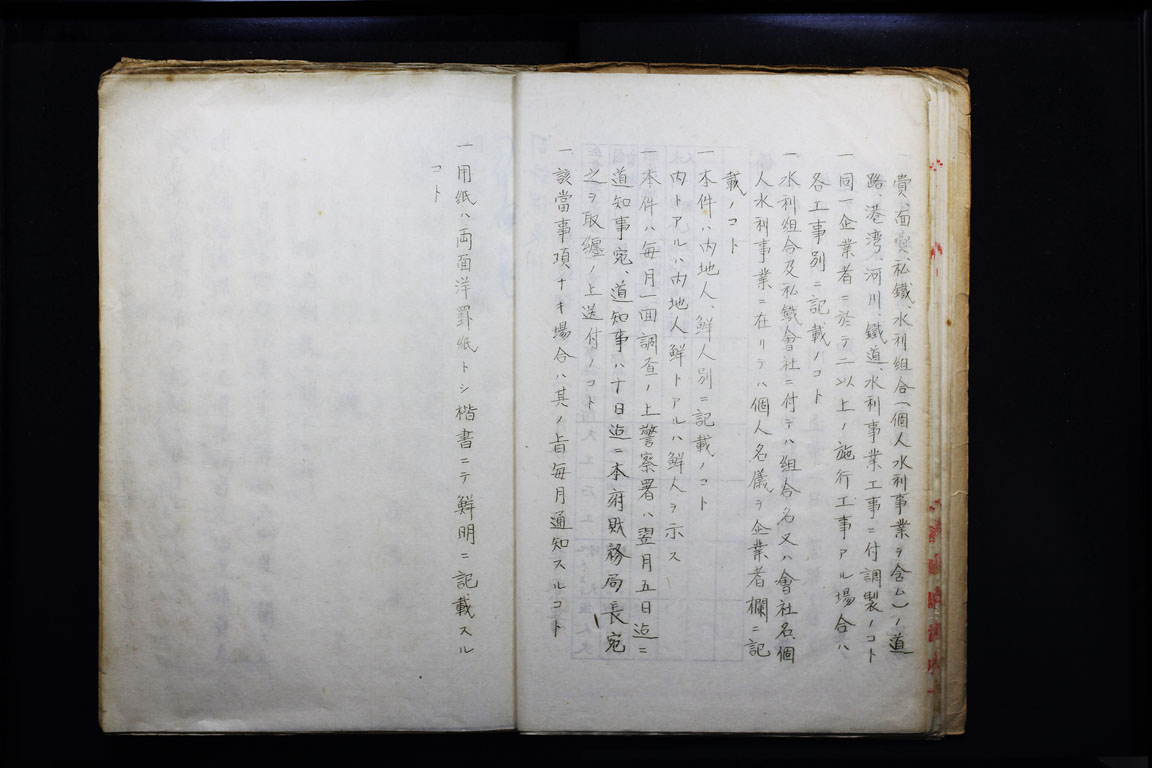 一費、面費、私鐵、水利組合(個人水利事業ヲ含ム)ノ道
路、港湾、河川、鐵道、水利事業工事ニ付調製ノコト
一同一企業者ニ於テ二以上ノ施行工事アル場合ハ
各工事別ニ記載ノコト
一水利組合及私鐵會社ニ付テハ組合名又ハ會社名、個
人水利事業ニ在リテハ個人名儀ヲ企業者欄ニ記
載ノコト
一本件ハ内地人、鮮人別ニ記載ノコト
内トアルハ内地人、鮮トアルハ鮮人ヲ示ス
一本件ハ毎月一回調査ノ上警察署ハ翌月五日迠ニ
道知事宛、道知事ハ十日迠ニ本府財務局長宛
之ヲ取纏ノ上送付ノコト
一該當事項ナキ場合ハ其ノ旨毎月通知スルコト
一用紙ハ両面洋罫紙トシ楷書ニテ鮮明ニ記載スル
コト